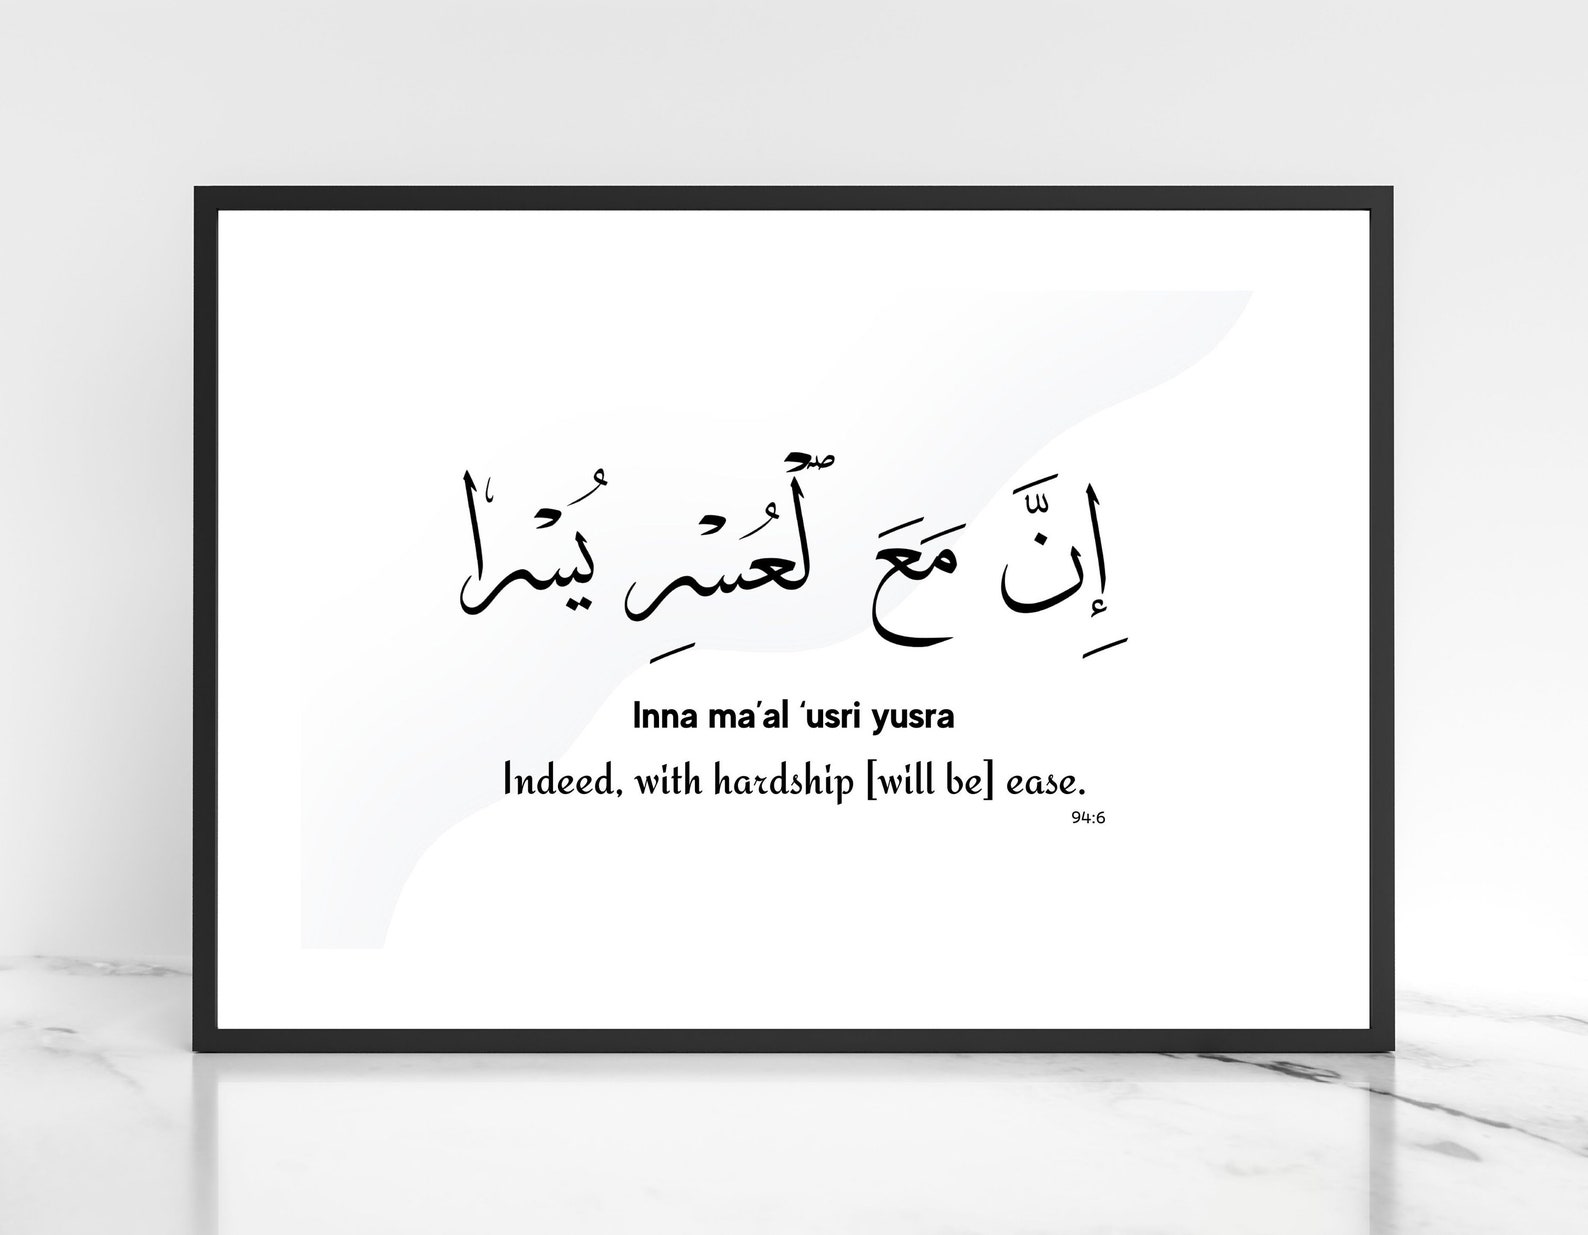 إِنَّ مَعَ لْعُسْرِ يُسْرا
Inna ma'al ‘usri yusra
Indeed, with hardship [will be] ease.
94:6